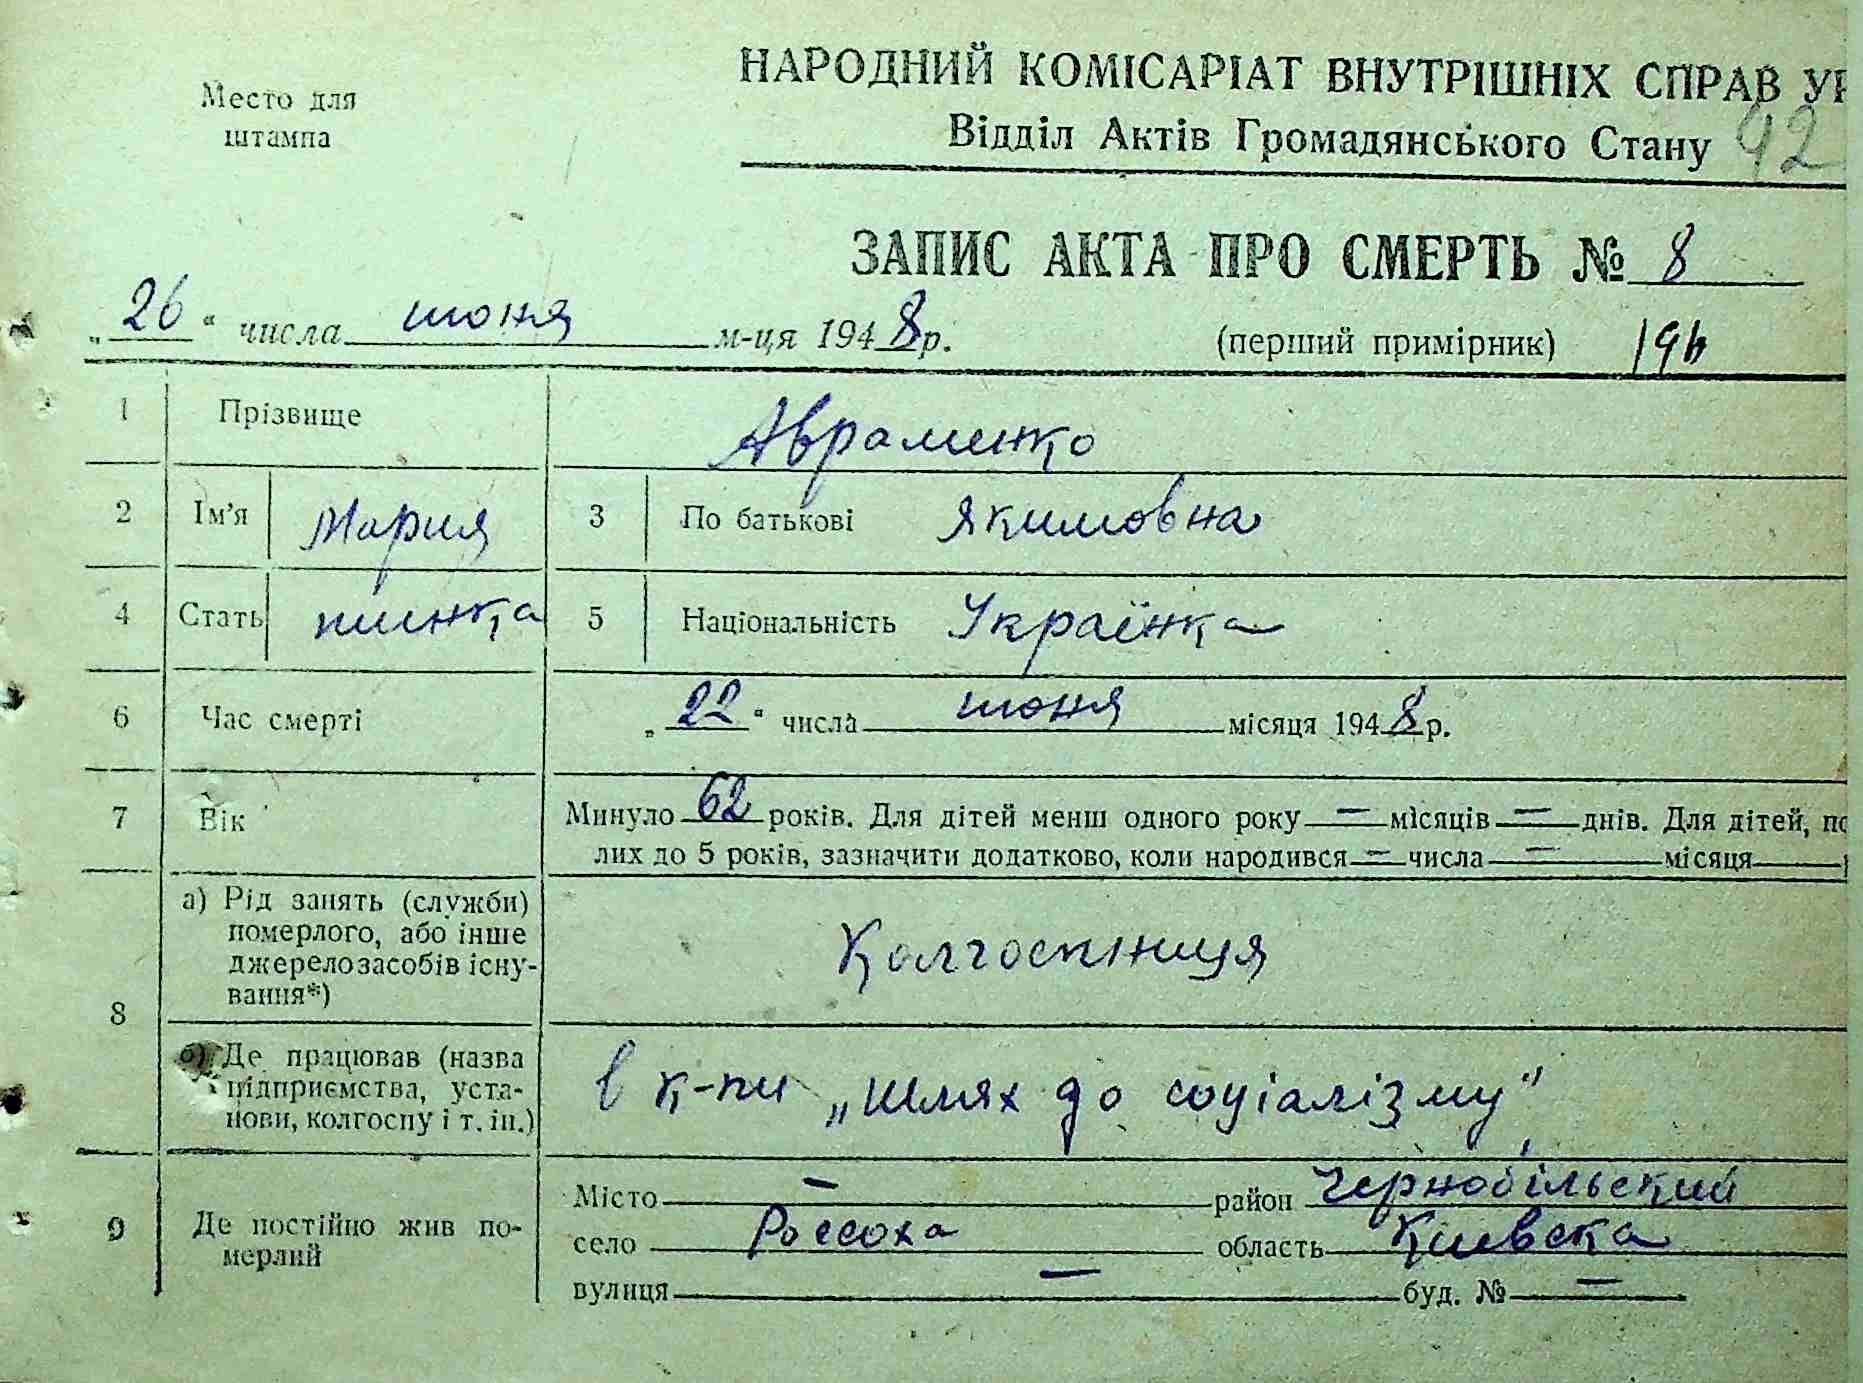 Место для
штампа
НАРОДНИЙ КОМІСАРІАТ ВНУТРІШНІХ СПРАВ УР
Відділ Актів Громадянського Стану 92
ЗАПИС АКТА ПРО СМЕРТЬ № 8
„26“ числа июня м-ця 1948р. (перший примірник)
1 Прізвище Авраменко
2 Ім'я Мария 3 По батькові Якимовна
4 Стать жинка 5 Національність Українка
6 Час смерті „22“ числа июня місяця 1948р.
7 Вік Минуло 62 років. Для дітей менш одного року — місяців — днів. Для дітей, по
лих до 5 років, зазначити додатково, коли народився — числа — місяця
8 а) Рід занять (служби)
померлого, або інше
джерело засобів існу-
вання*) Колгоспниця
б) Де працював (назва
підприємства, уста-
нови, колгоспу і т. ін.) в к-пи „шлях до соціалізму“
9 Де постійно жив по-
мерлий
Місто — район Чернобільский
село Россоха область Киевска
вулиця — буд. № —